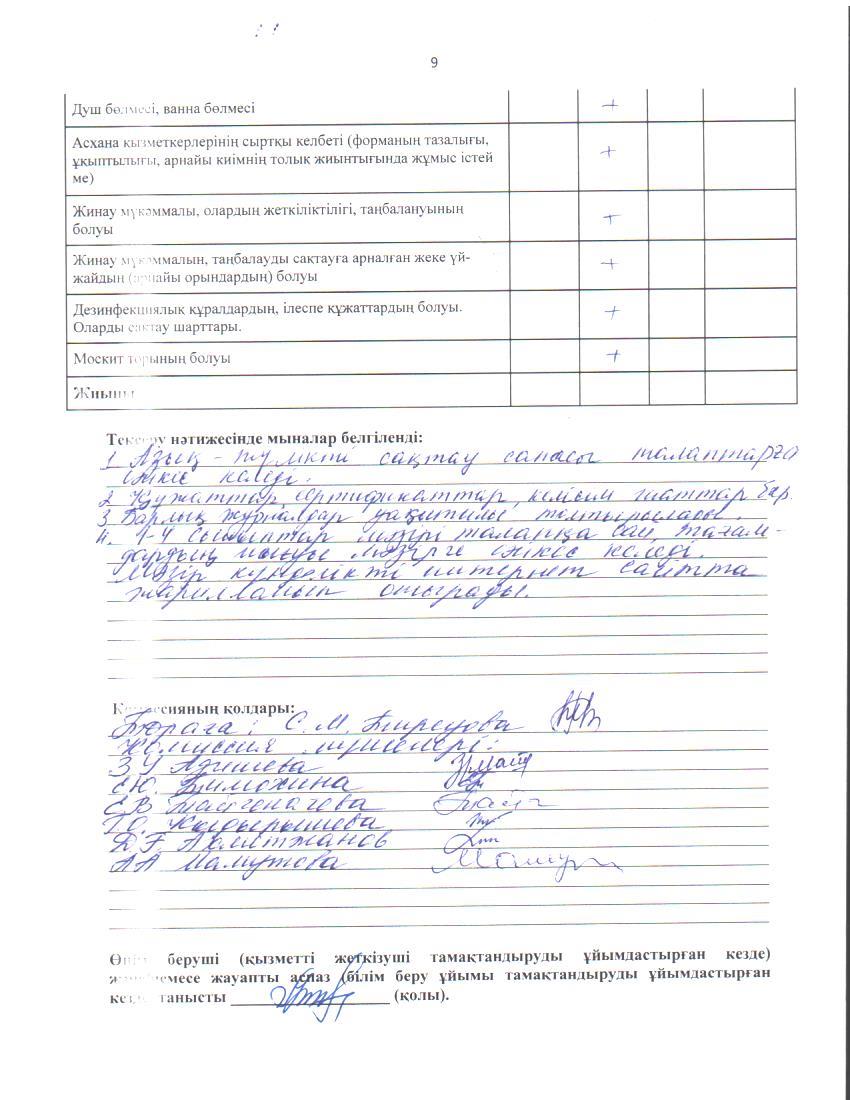 9
Душ бөлмесі, ванна бөлмесі +
Асхана қызметкерлерінің сыртқы келбеті (форманың тазалығы,
ұқыптылығы, арнайы киімнің толық жиынтығында жұмыс істей +
ме)
Жинау мүкәммалы, олардың жеткіліктілігі, таңбалануының +
болуы
Жинау мүкәммалын, таңбалауды сақтауға арналған жеке үй- +
жайдың (арнайы орындардың) болуы
Дезинфекциялық құралдардың, ілеспе құжаттардың болуы. +
Оларды сақтау шарттары.
Москит торының болуы +
Жиыны
Тексеру нәтижесінде мыналар белгіленді:
1. Азық-түлікті сақтау сапасы талаптарға
сәйкес келеді.
2. Құжаттар, сертификаттар, келісім шаттар бар.
3. Барлық журналдар уақытылы толтырылады.
4. 1-4 сыныптар мәзірі талапқа сай, тағам-
дардың шығуы мәзірге сәйкес келеді.
Мәзір күнделікті интернет сайтта
жарияланып отырады.
Комиссияның қолдары:
Төраға: С.М.
Комиссия мүшелері:
З.У
Е.Ю. Тимохина
Е.В
Г.О.
Д.Ғ.
А.А Мамутова
Өнім беруші (қызметті жеткізуші тамақтандыруды ұйымдастырған кезде)
және/немесе жауапты аспаз (білім беру ұйымы тамақтандыруды ұйымдастырған
кезде) танысты (қолы).